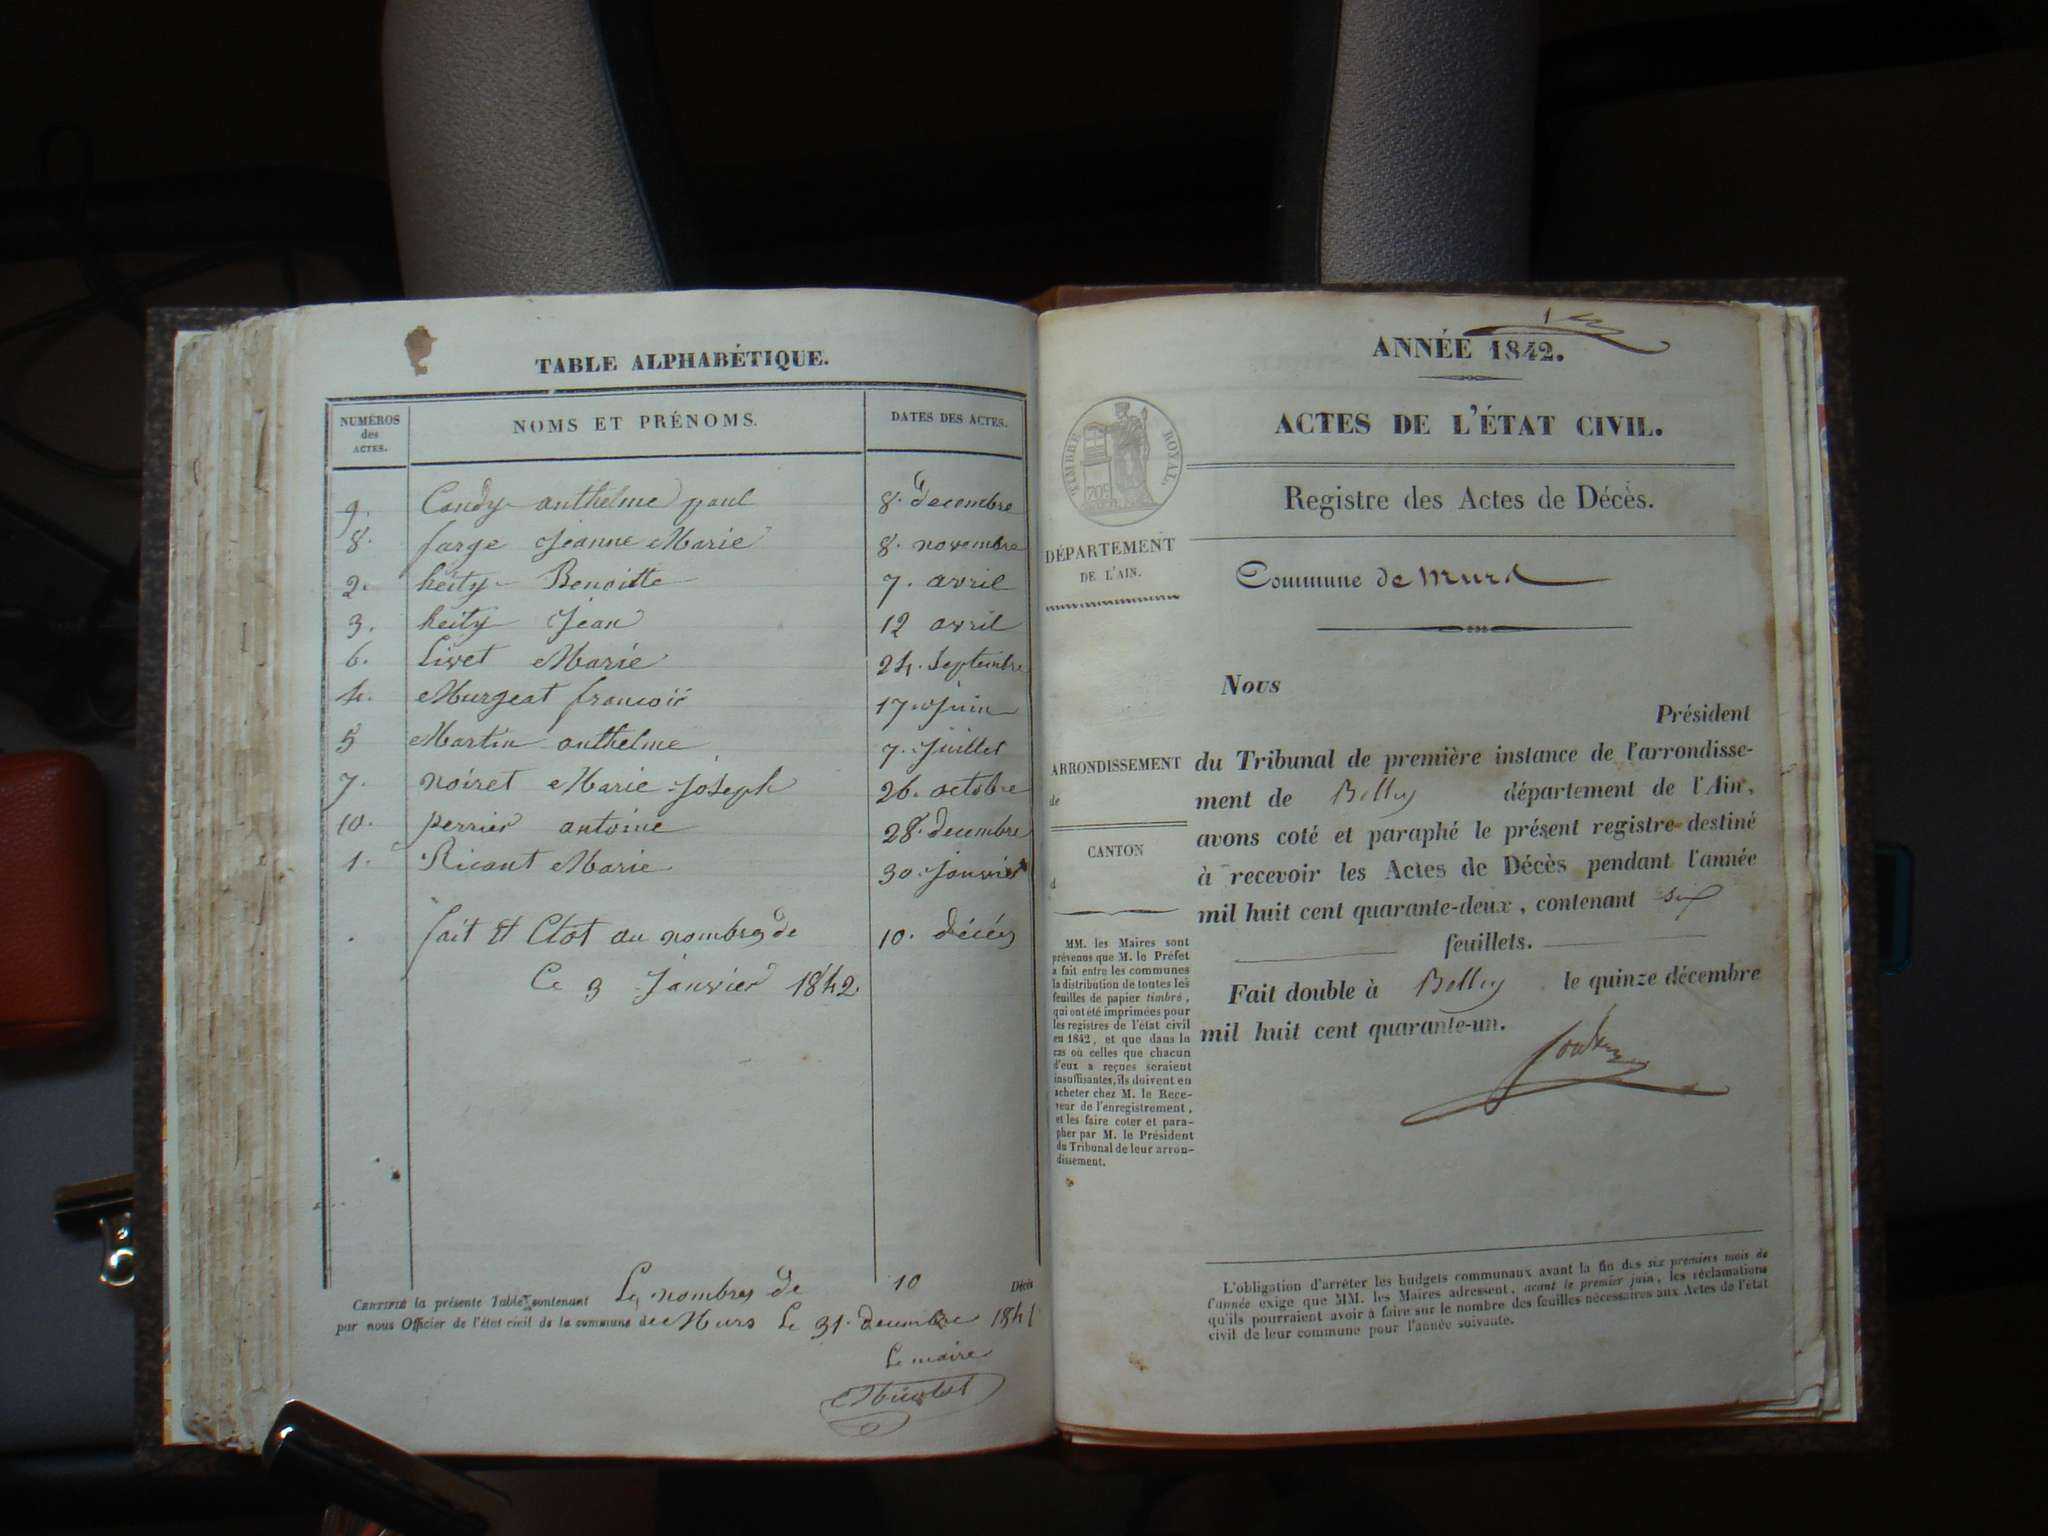 TABLE ALPHABÉTIQUE.
NUMÉROS des ACTES. NOMS ET PRÉNOMS. DATES DES ACTES.
9. Candy anthelme paul 8. decembre
8. farge Jeanne Marie 8. novembre
2. heity Benoitte 7. avril
3. heity Jean 12 avril
6. Livet Marie 24. Septembre
4. Murgeat francois 17 Juin
5 Martin anthelme 7. Juillet
7. noiret Marie Joseph 26. octobre
10. perrier antoine 28. decembre
1. Ricant Marie 30. Janvier
fait Et Clot au nombres de 10. décés
Ce 3 Janvier 1842
CERTIFIÉ la présente Table contenant Le nombres de 10 Décès
par nous Officier de l'état civil de la commune de Murs Le 31. decembre 1841
Le maire
1
ANNÉE 1842.
ACTES DE L'ÉTAT CIVIL.
TIMBRE ROYAL.
Registre des Actes de Décès.
DÉPARTEMENT
DE L'AIN.
Commune de Murs
Nous
Président
du Tribunal de première instance de l'arrondisse-
ment de Belley département de l'Ain,
avons coté et paraphé le présent registre destiné
à recevoir les Actes de Décès pendant l'année
mil huit cent quarante-deux, contenant six
feuillets.
Fait double à Belley le quinze décembre
mil huit cent quarante-un.
ARRONDISSEMENT
de
CANTON
d
MM. les Maires sont
prévenus que M. le Préfet
a fait entre les communes
la distribution de toutes les
feuilles de papier timbré,
qui ont été imprimées pour
les registres de l'état civil
en 1842, et que dans la
cas où celles que chacun
d'eux a reçues seraient
insuffisantes, ils doivent en
acheter chez M. le Rece-
veur de l'enregistrement,
et les faire coter et para-
pher par M. le Président
du Tribunal de leur arron-
dissement.
L'obligation d'arrêter les budgets communaux avant la fin des six premiers mois de
l'année exige que MM. les Maires adressent, avant le premier juin, les réclamations
qu'ils pourraient avoir à faire sur le nombre des feuilles nécessaires aux Actes de l'état
civil de leur commune pour l'année suivante.